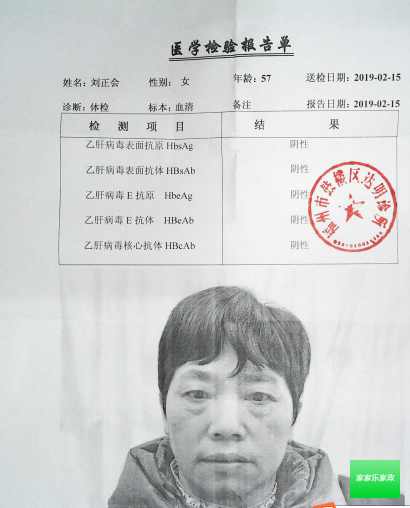 医学检验报告单
姓名：刘正会 性别：女 年龄：57 送检日期：2019-02-15
诊断：体检 标本：血清 备注 报告日期：2019-02-15
检 测 项 目 结 果
乙肝病毒表面抗原 HbsAg 阴性
乙肝病毒表面抗体 HBsAb 阴性
乙肝病毒 E 抗原 HbeAg 阴性
乙肝病毒 E 抗体 HBeAb 阴性
乙肝病毒核心抗体 HBcAb 阴性
福州市鼓楼区达明诊所
家家乐家政